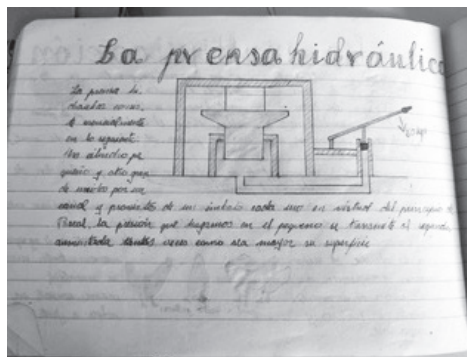 La prensa hidráulica
La prensa hi-
dráulica consis-
te esencialmente
en lo siguiente
Un cilindro pe
queño y otro gran
de unidos por un
canal y provistos de un émbolo cada uno en virtud del principio de
Pascal, la presión que hagamos en el pequeño se transmite al segundo
aumentada tantas veces como sea mayor su superficie